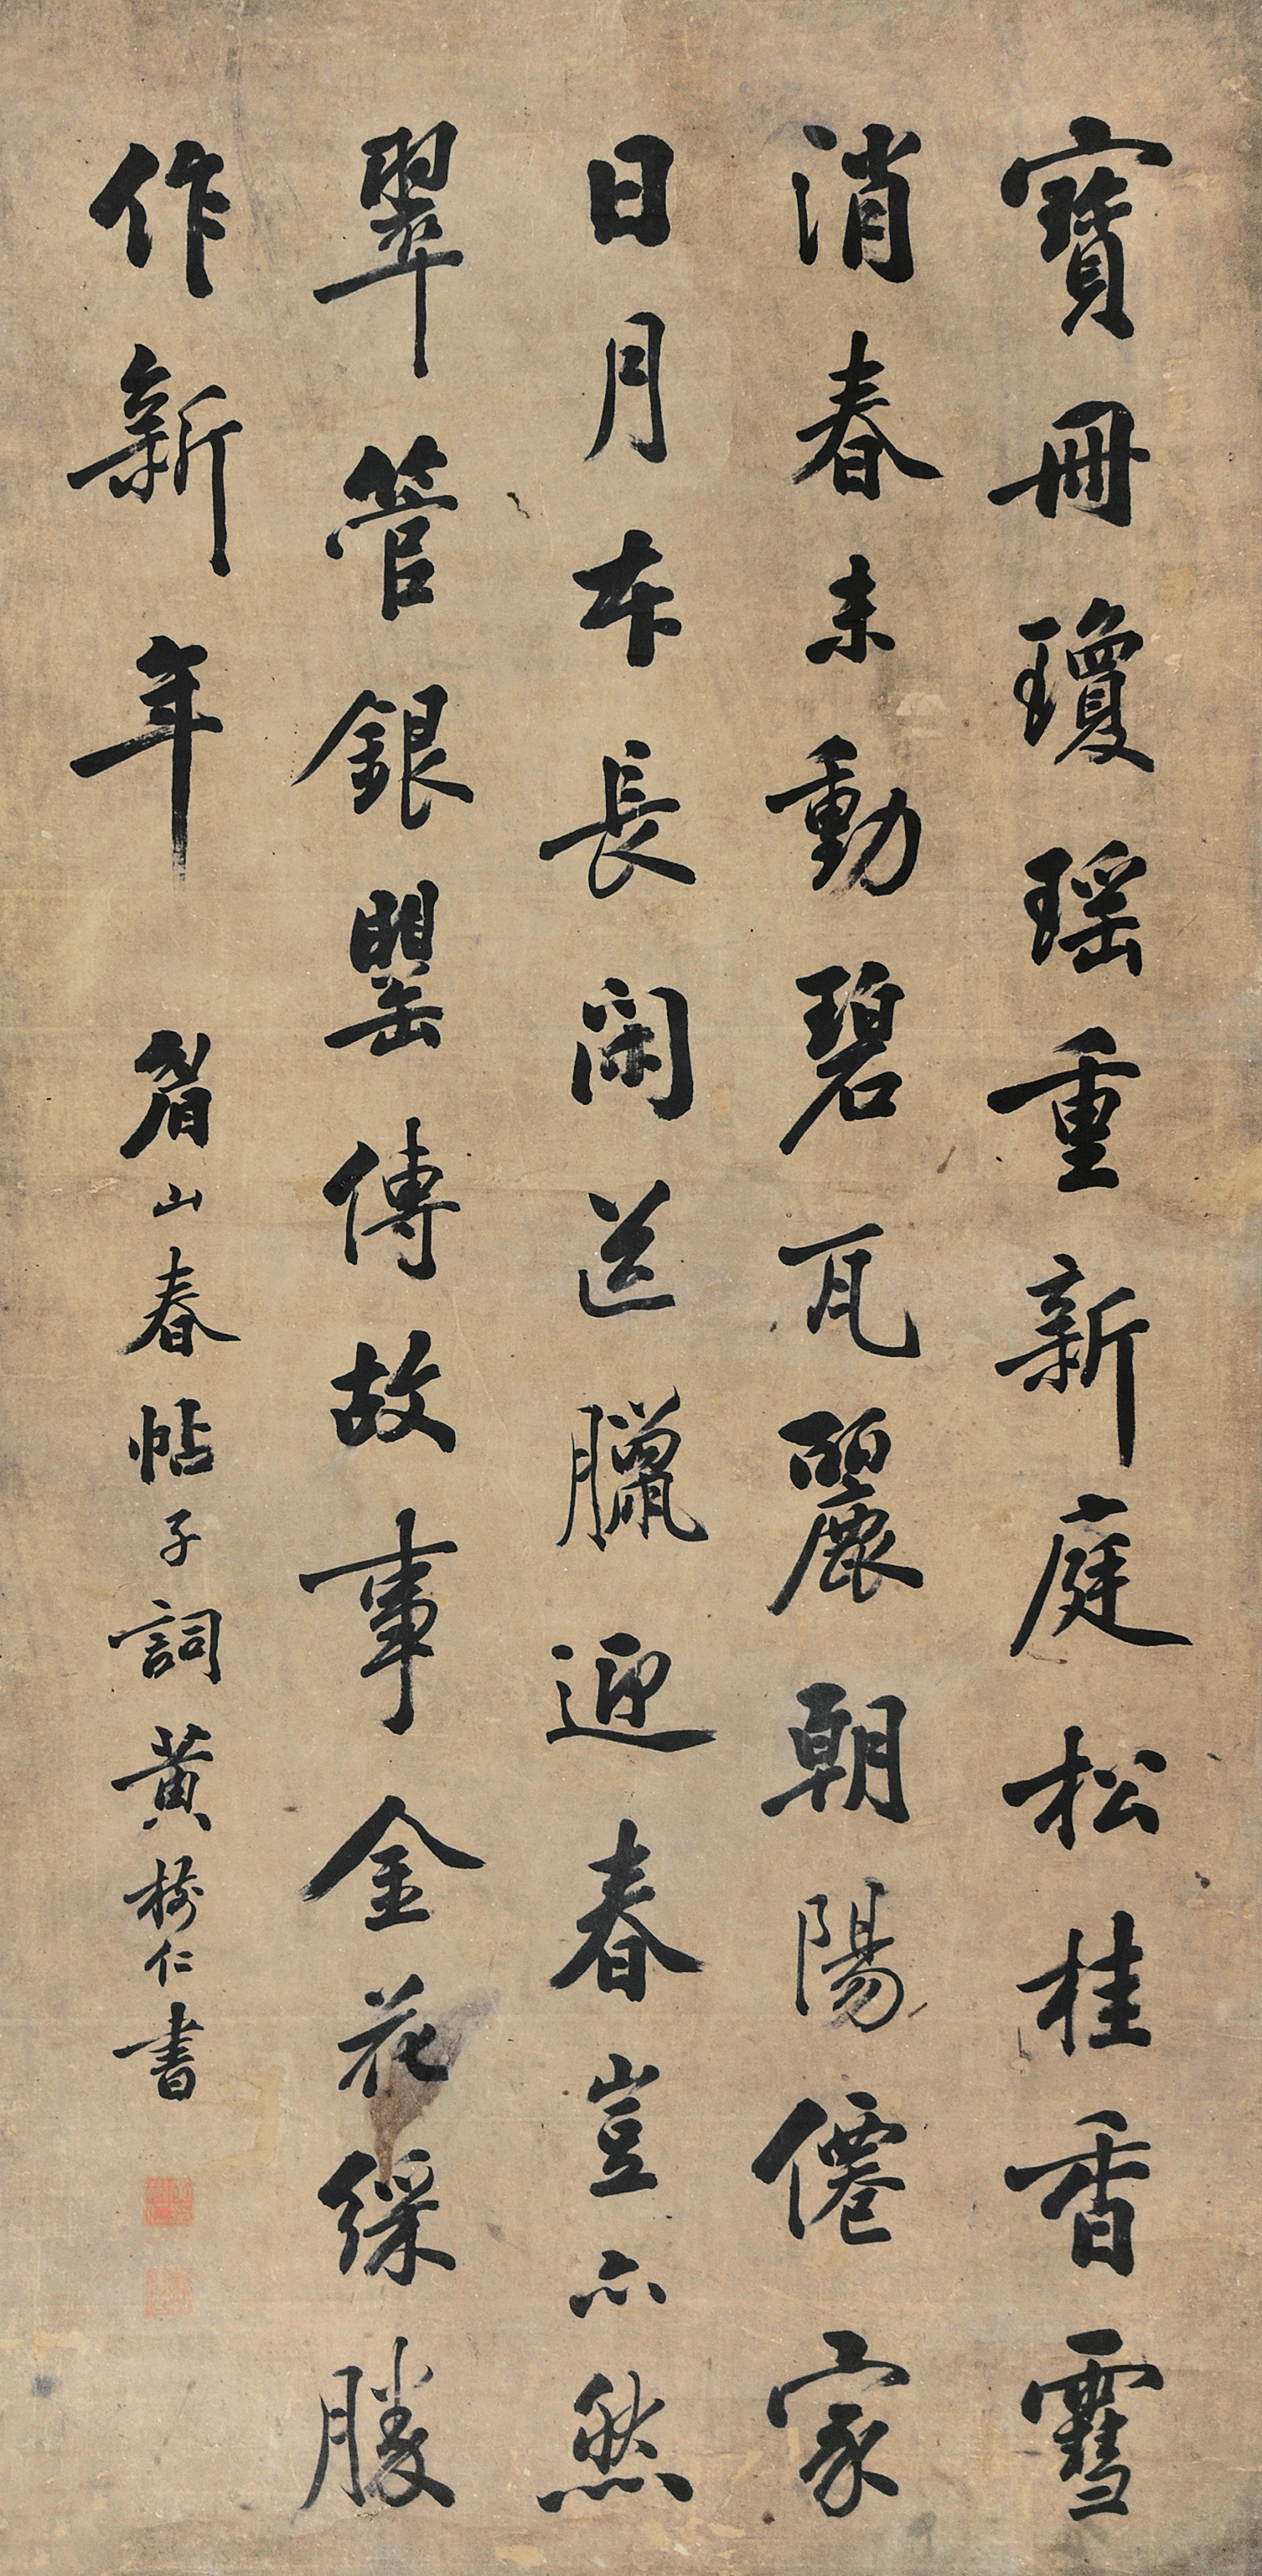 寶冊瓊瑶重新庭松桂香雪
消春未動碧瓦麗朝陽僊家
日月本長閑送臘迎春豈亦然
翠管銀罌傳故事金花綵勝
作新年
眉山春帖子詞黃樹仁書